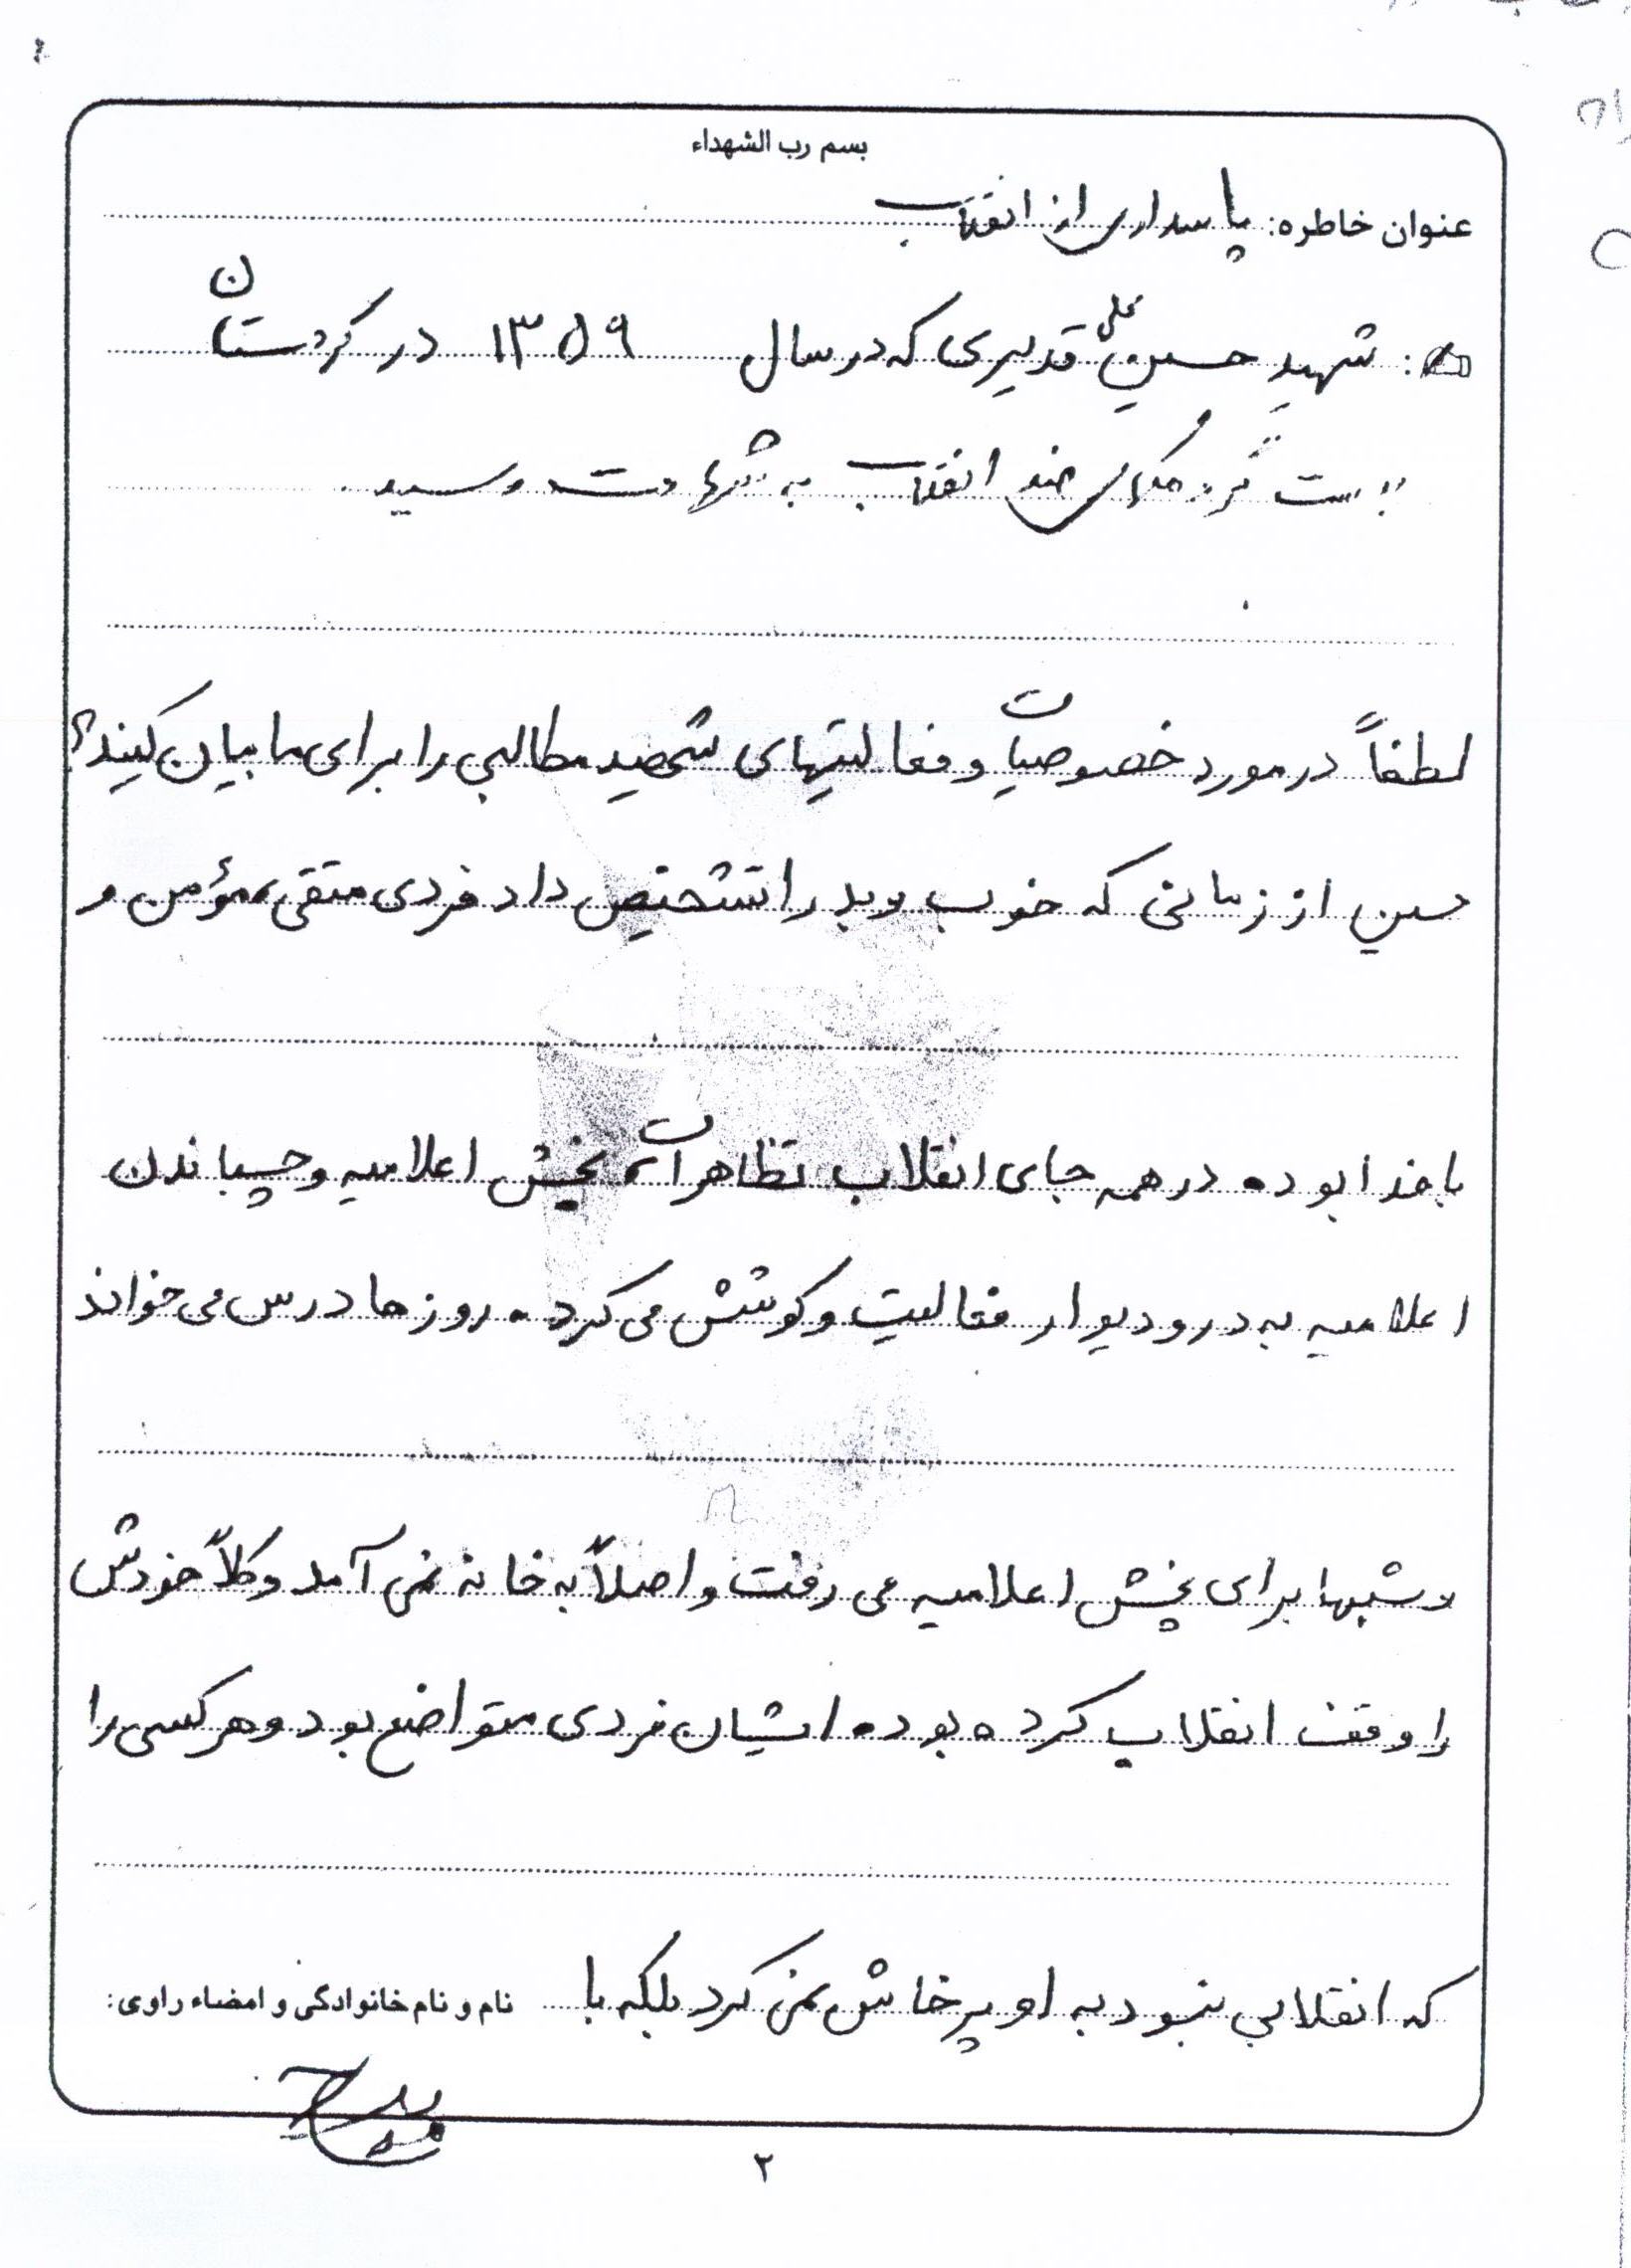 بسم رب الشهداء
عنوان خاطره: پاسداری از انقلاب
: شهید حسین علی قدیری که در سال ۱۳۵۹ در کردستان
بدست گروهکهای ضد انقلاب به شهادت رسید.
لطفاً در مورد خصوصیات و فعالیتهای شهید مطالبی را برای ما بیان کنید؟
حسین از زمانی که خوب و بد را تشخیص داد فردی متقی، مؤمن و
با خدا بوده در همه جای انقلاب تظاهرات، پخش اعلامیه و چسباندن
اعلامیه به در و دیوار فعالیت و کوشش می کرد. روزها درس می خواند
و شبها برای پخش اعلامیه می رفت و اصلاً به خانه نمی آمد و کلاً خودش
را وقف انقلاب کرده بود. ایشان فردی متواضع بود و هر کسی را
که انقلابی نبود به او پرخاش نمی کرد بلکه با نام و نام خانوادگی و امضاء راوی:
۲